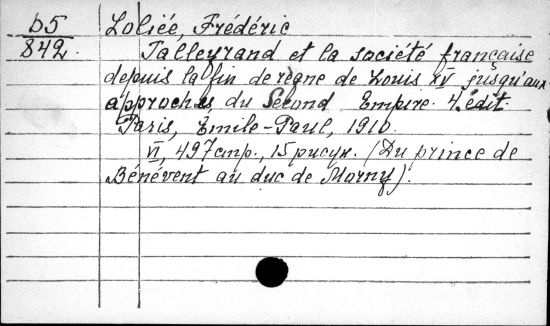 b5 Loliée, Frédéric
842. Talleyrand et la société française
depuis la fin de règne de Louis XV jusqu'aux
approches du Second Empire. 4 édit.
Paris, Emile-Paul, 1910.
VI, 497 стр., 15 рисун. (Du prince de
Bénévent au duc de Morny).